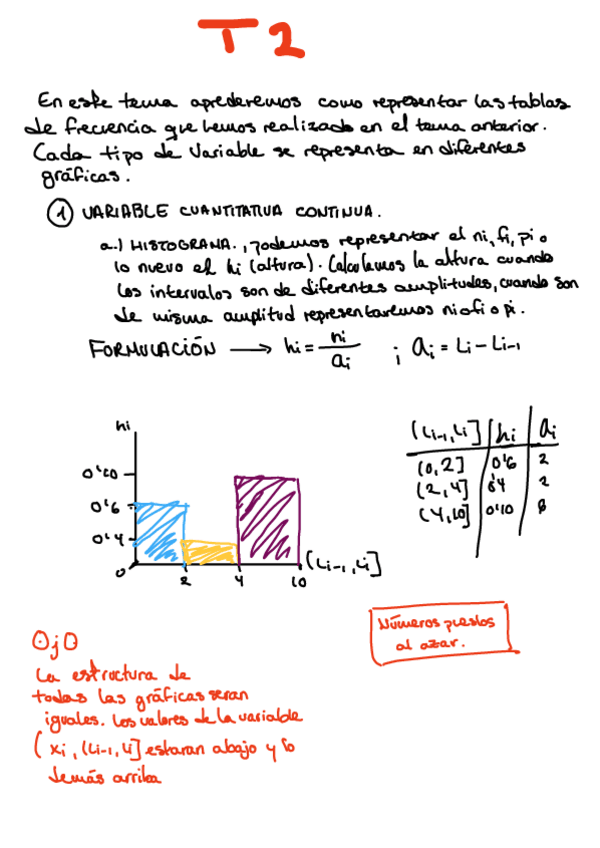 T2
En este tema aprederemos como representar las tablas
de frecuencia que hemos realizado en el tema anterior.
Cada tipo de variable se representa en diferentes
gráficas.
1 VARIABLE CUANTITATIVA CONTINUA.
a.) HISTOGRANA., podemos representar el ni, fi, pi o
lo nuevo el hi (altura). Calculamos la altura cuando
los intervalos son de diferentes amplitudes, cuando son
de misma amplitud representaremos ni o fi o pi.
FORMULACIÓN → hi = ni/ai ; ai = Li - Li-1
hi
0'10
0'6
0'4
0
2
4
10
(Li-1, Li]
(Li-1, Li] hi ai
(0, 2] 0'6 2
(2, 4] 0'4 2
(4, 10] 0'10 8
Números puestos
al azar.
OjO
La estructura de
todas las gráficas seran
iguales. Los valores de la variable
( xi, (Li-1, Li] estaran abajo y lo
demás arriba